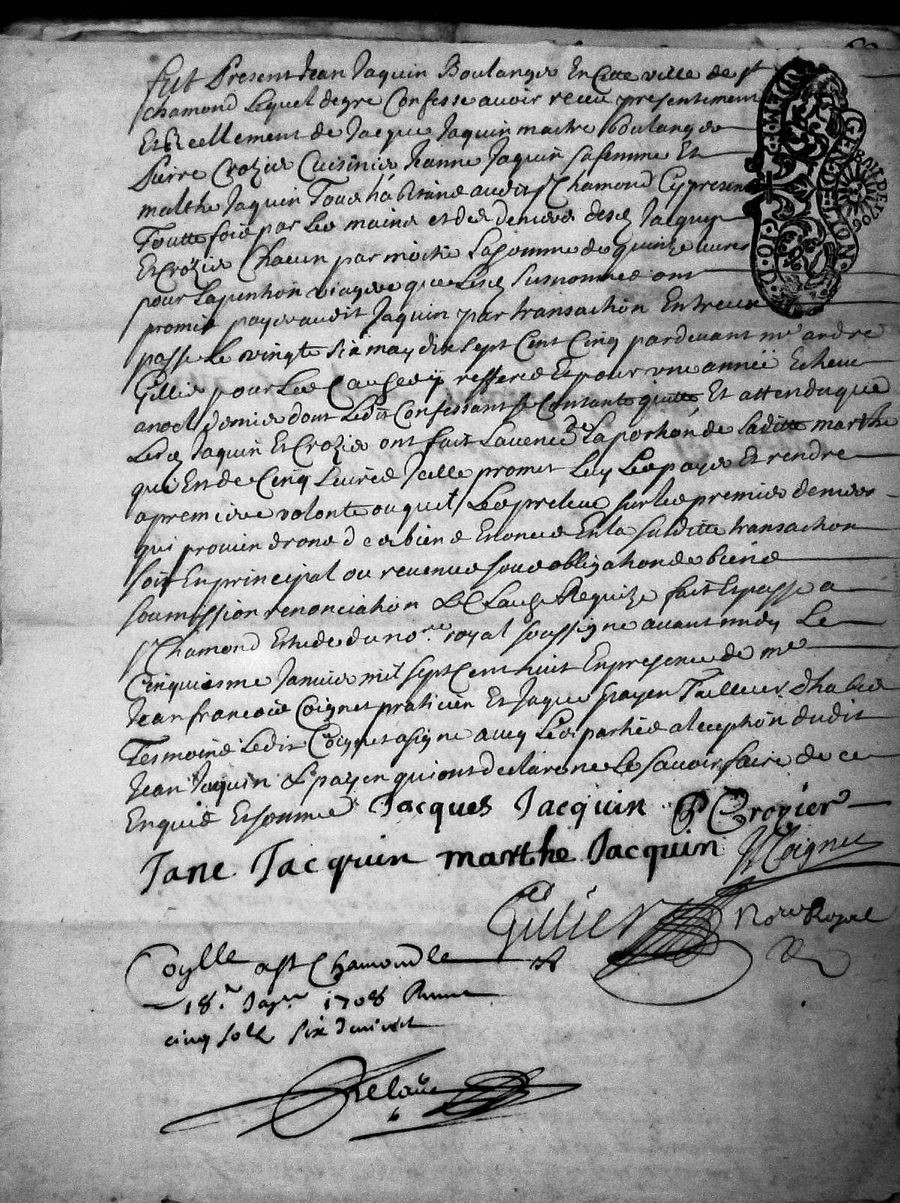 fut Present Jean Jaquin Boulanger En Cette ville de st
chamond Lequel de gre Confesse avoir receu presentement
Et Reellement de Jacque Jaquin maitre boulanger
Pierre Crozier Cuisinier Jeanne Jaquin sa femme Et
malthe Jaquin Tous habitans audit st Chamond Cy present
Toutte fois par Les mains et des deniers desd Jacquin
Et Crozier Chacun par moitie La somme de quinze livres
pour La pention viagere que Lesd susnommes ont
promis payer audit Jaquin par transaction Entreux
passe Le vingte six may dix sept Cent Cinq pardevant me andre
Gillier pour Les Causes y refferes Et pour une année Echeue
a noel dernier dont Ledit Confessant se Contante quitte Et attendu que
Lesd Jaquin Et Crozier ont fait Lavence de La portion de Laditte marthe
qui Est de Cinq Livres Icelle promet Leur Les payer Et rendre
a premiere volonte ou quil Les preleve sur Les premiers deniers
qui proviendrons des biens Enonces En La susditte transaction
soit En principal ou revenus sous obligation de biens
soumission renonciation & Clause Requize fait Et passe a
st Chamond Etude du nore royal soussigne avant midy Le
Cinquiesme Janvier mil sept Cent huit En presence de me
Jean francois Coignet praticien Et Jaque payen Tailleur d'habis
Tesmoins Ledit Coignet a signe avec Les parties a lexception dudit
Jean Jaquin & payen qui ont declare ne Le savoir faire de ce
Enquis Et somme Jacques Jacquin P Crozier
Jane Jacquin marthe Jacquin Jf Coignet
Gillier Nore Royal
Coylle a st Chamond le
18e Janer 1708 Receu
cinq solz six deniers
Delaüe
GE · LION